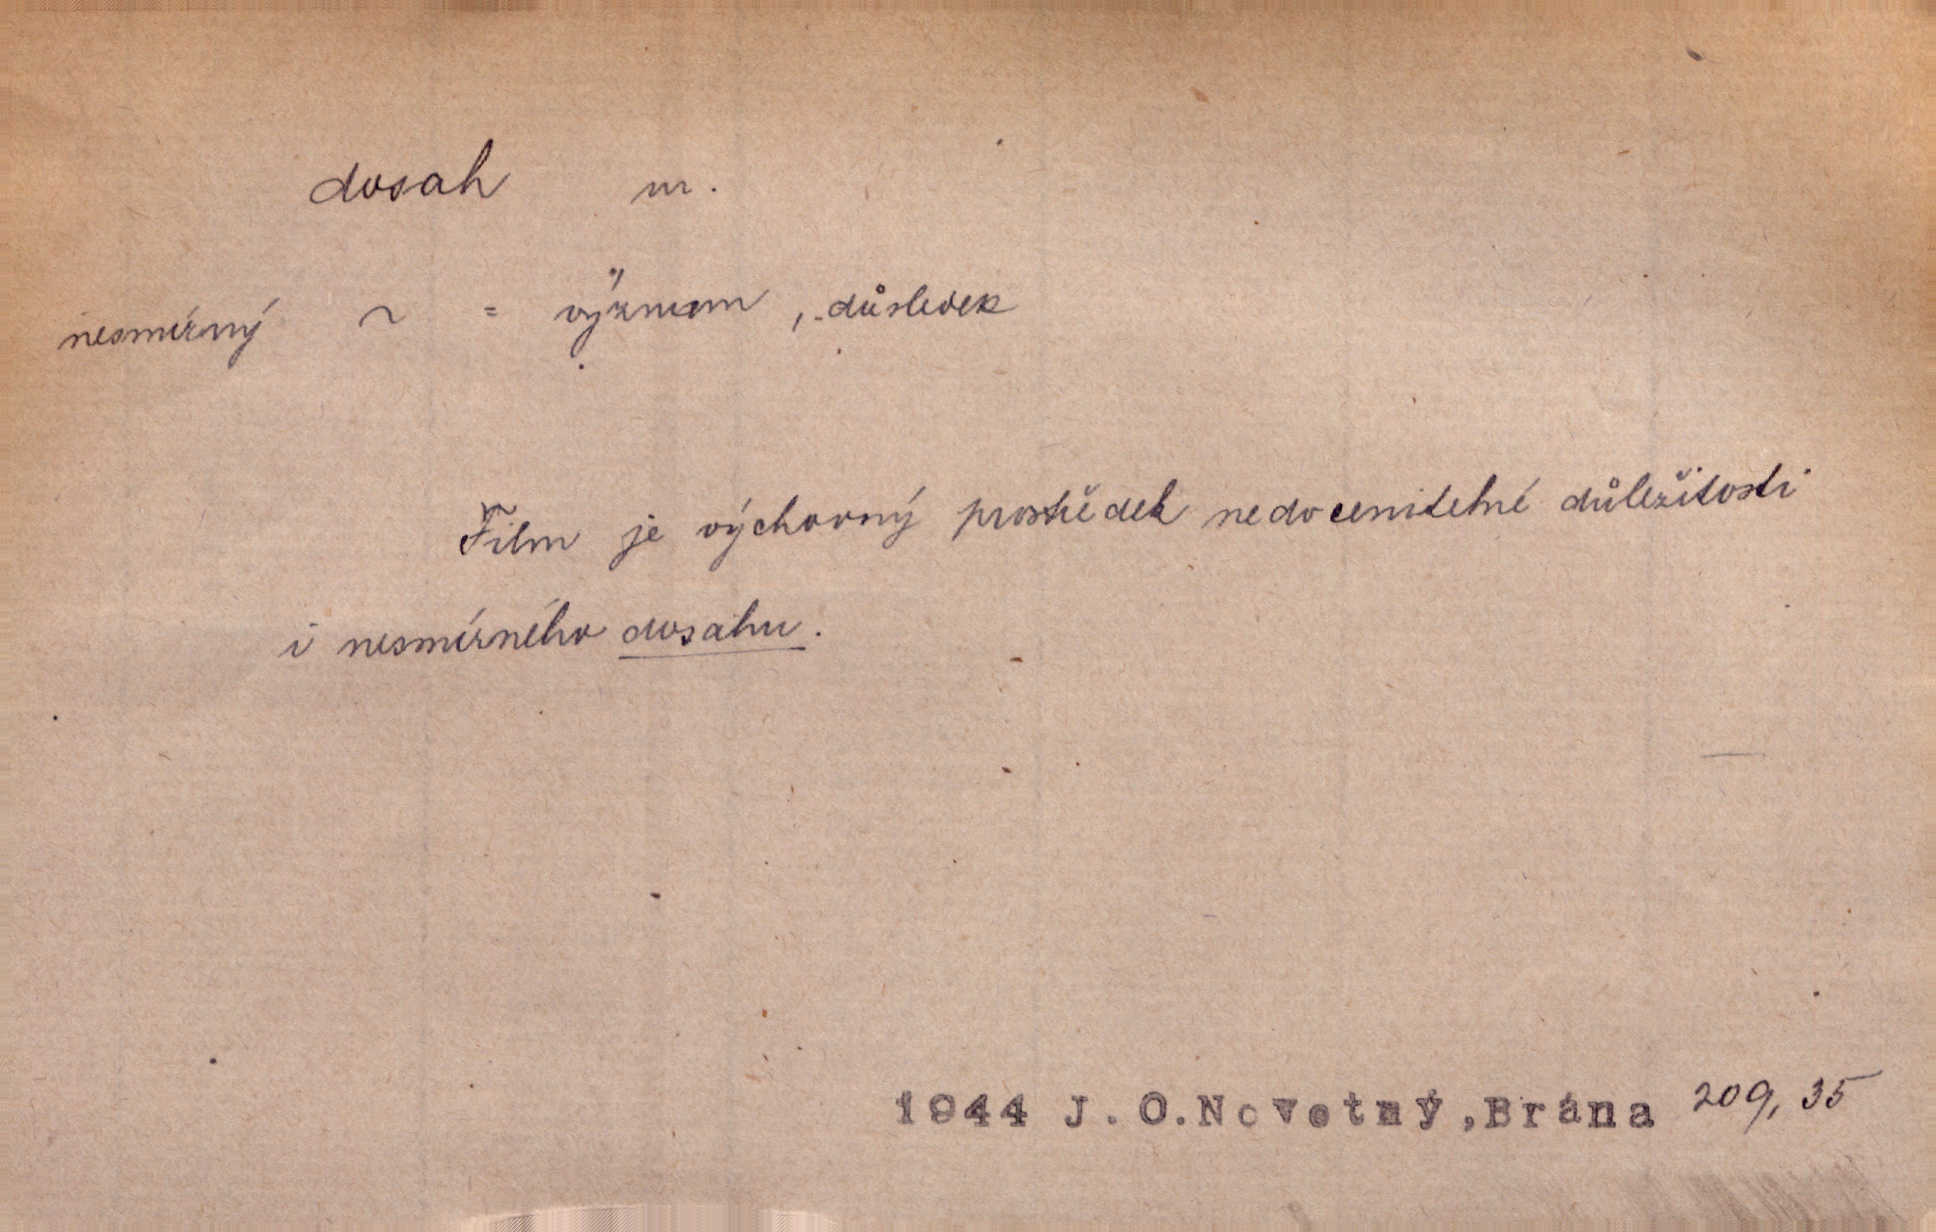 dosah m.
nesmírný ~ = význam, důsledek
Film je výchovný prostředek nedocenitelné důležitosti
i nesmírného dosahu.
1944 J.O.Novotný,Brána 209, 35